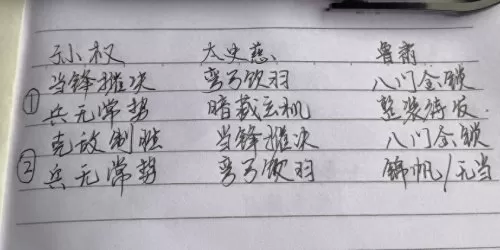 孙权 太史慈 鲁肃
当锋摧决 弯弓饮羽 八门金锁
① 兵无常势 暗藏玄机 整装待发
克敌制胜 当锋摧决 八门金锁
② 兵无常势 弯弓饮羽 锦帆/无当